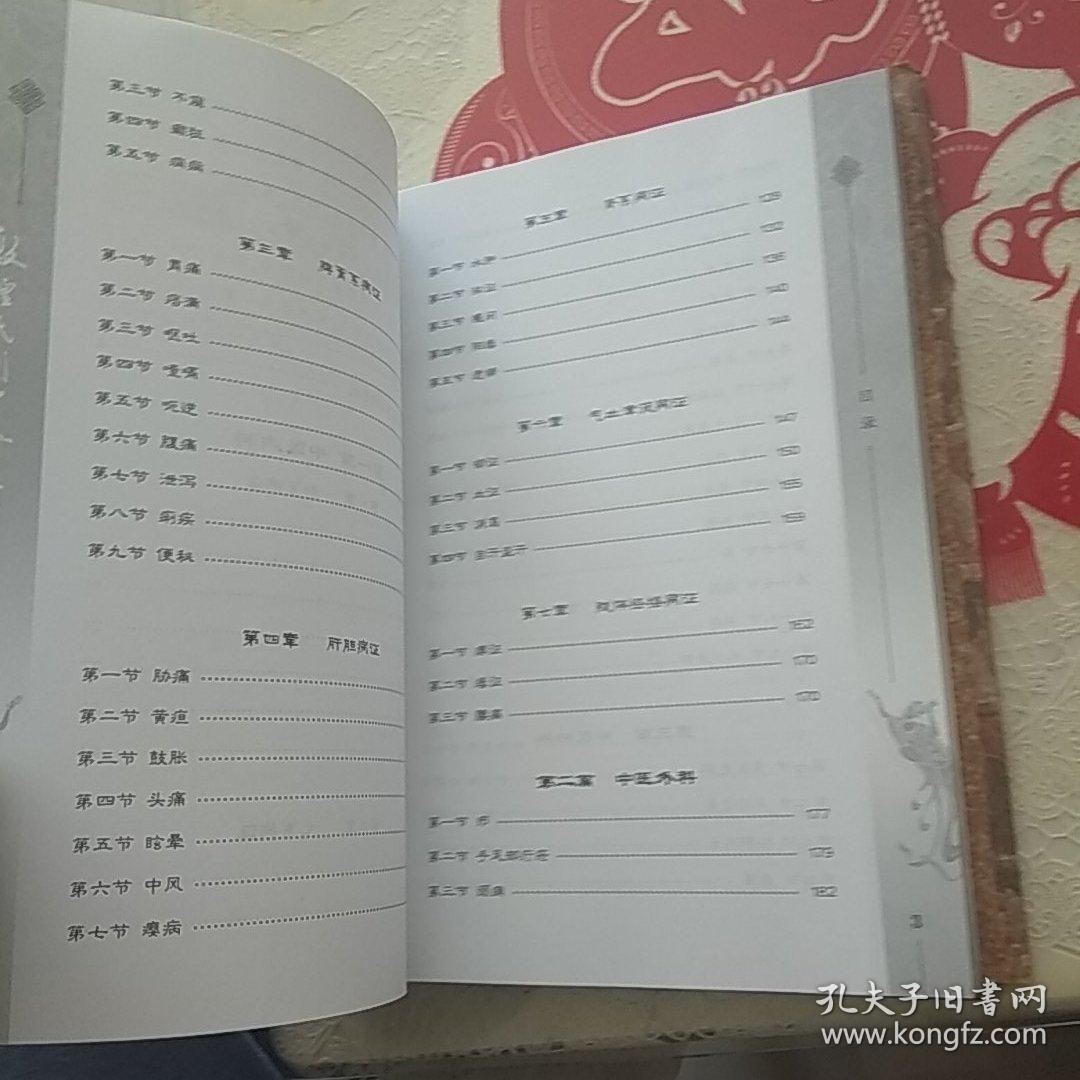 第三节 不寐
第四节
第五节
第三章 脾胃系病证
第一节 胃痛
第二节 痞满
第三节 呕吐
第四节 噎嗝
第五节 呃逆
第六节 腹痛
第七节 泄泻
第八节 痢疾
第九节 便秘
第四章 肝胆病证
第一节 胁痛
第二节 黄疸
第三节 鼓胀
第四节 头痛
第五节 眩晕
第六节 中风
第七节 瘿病
第五章 病证 129
第一节 水肿 132
第二节 淋证 136
第三节 140
第四节 阳痿 144
第五节 遗精
第六章 气血津液病证 147
第一节 郁证 150
第二节 血证 155
第三节 159
第四节
第七章 肢体经络病证 162
第一节 170
第二节
第三节 腰痛
第二篇 中医外科
第一节 177
第二节 手足部疔疮 179
第三节 182
目录
3
孔夫子旧書网
www.kongfz.com